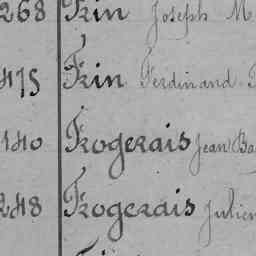 268 Frin Joseph M
475 Frin Ferdinand
440 Frogerais Jean Ba
248 Frogerais Julien